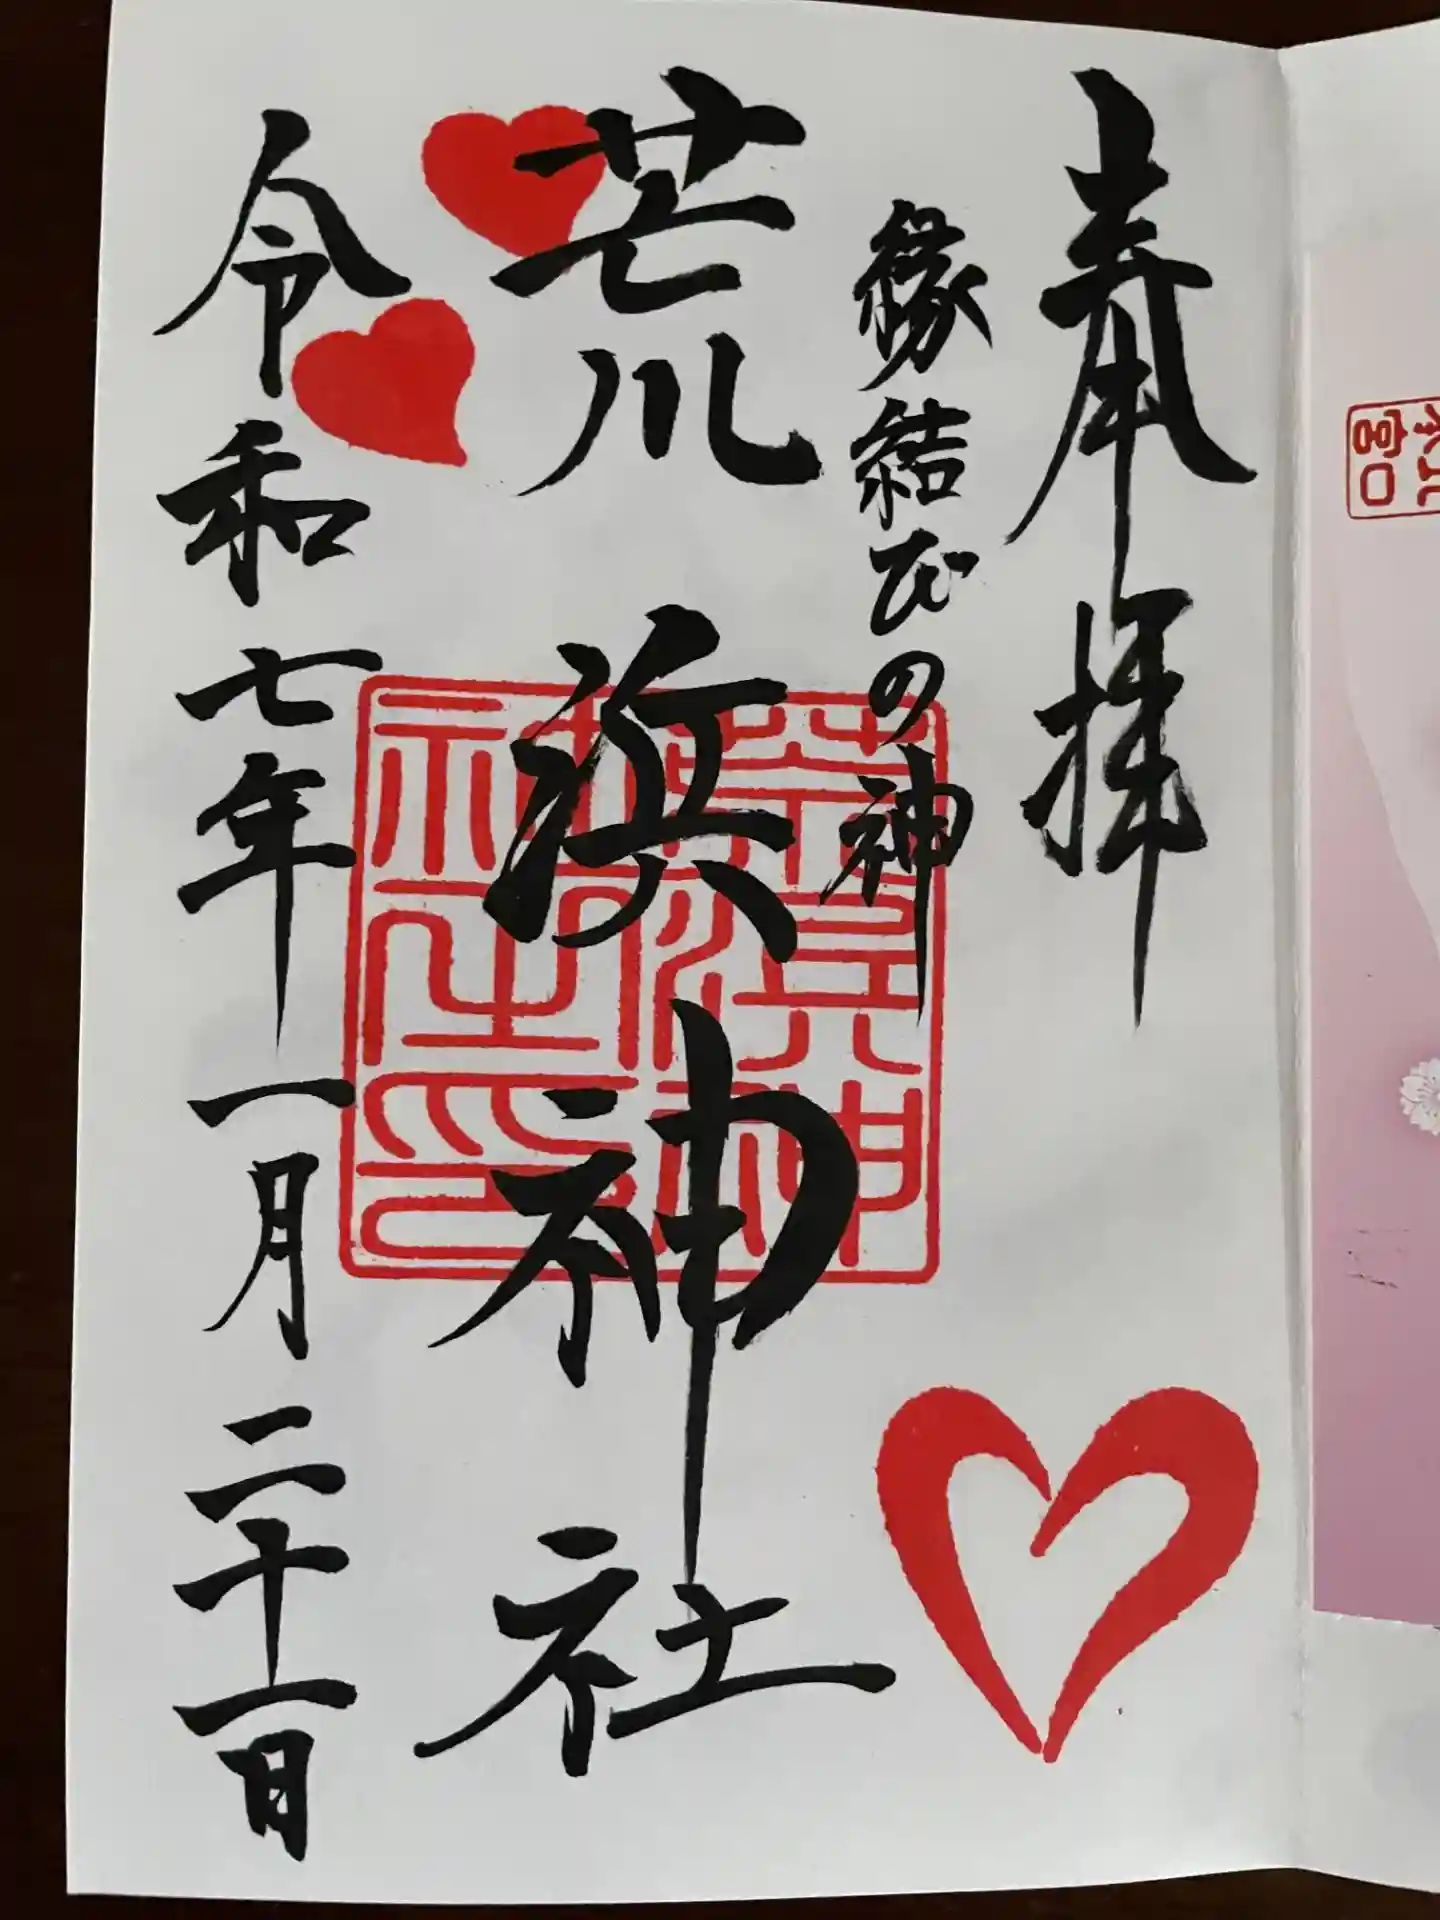 奉拝
縁結びの神
荒浜神社
荒濱神
社之印
令和七年一月二十一日